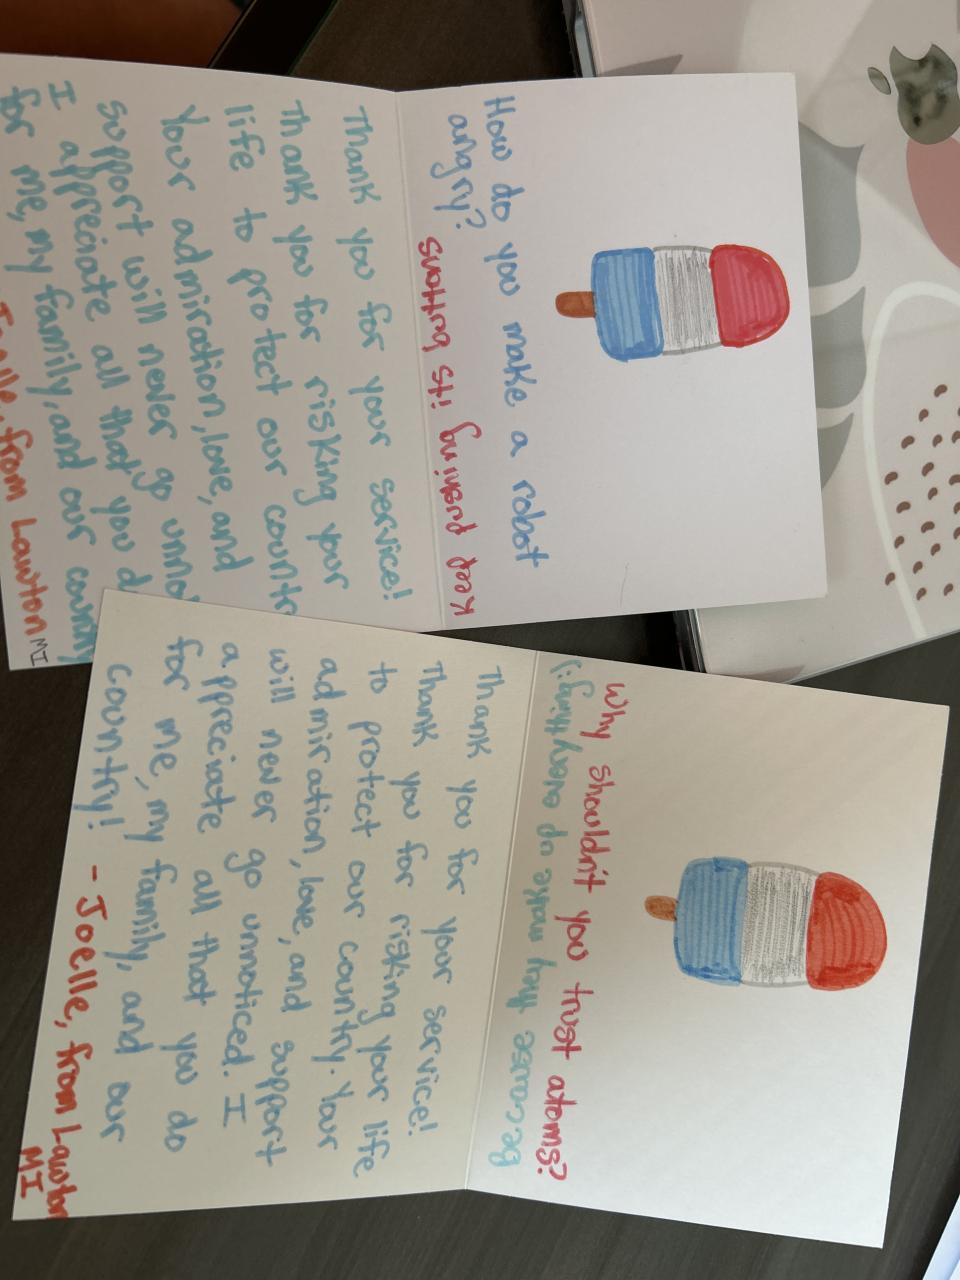 How do you make a robot
angry?
Keep pressing its buttons
Thank you for your service!
Thank you for risking your
life to protect our
Your admiration, love, and
support will never go
I appreciate all that you
for me, my family, and our country
from Lawton MI
Why shouldn't you trust atoms?
Because they make up everything!
Thank you for your service!
Thank you for risking your life
to protect our country. Your
admiration, love, and support
will never go unnoticed. I
appreciate all that you do
for me, my family, and our
country! - Joelle, from Lawton
MI